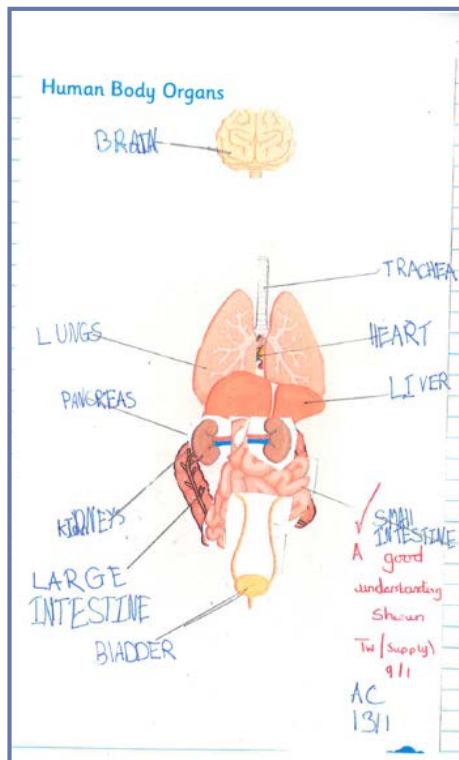 Human Body Organs
BRAIN
TRACHEA
LUNGS
HEART
LIVER
PANCREAS
KIDNEYS
SMALL
INTESTINE
LARGE
INTESTINE
BLADDER
A good
understanding
shown
TW/(Supply)
9/1
AC
13/1